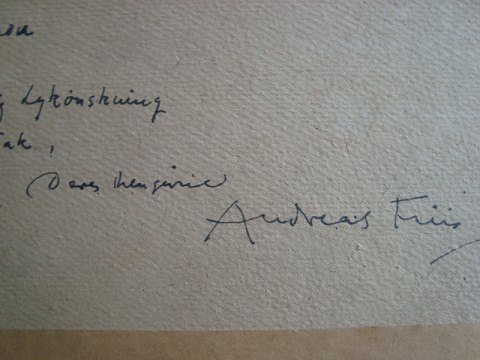 Lykønskning
Tak,
Deres hengivne
Andreas Friis